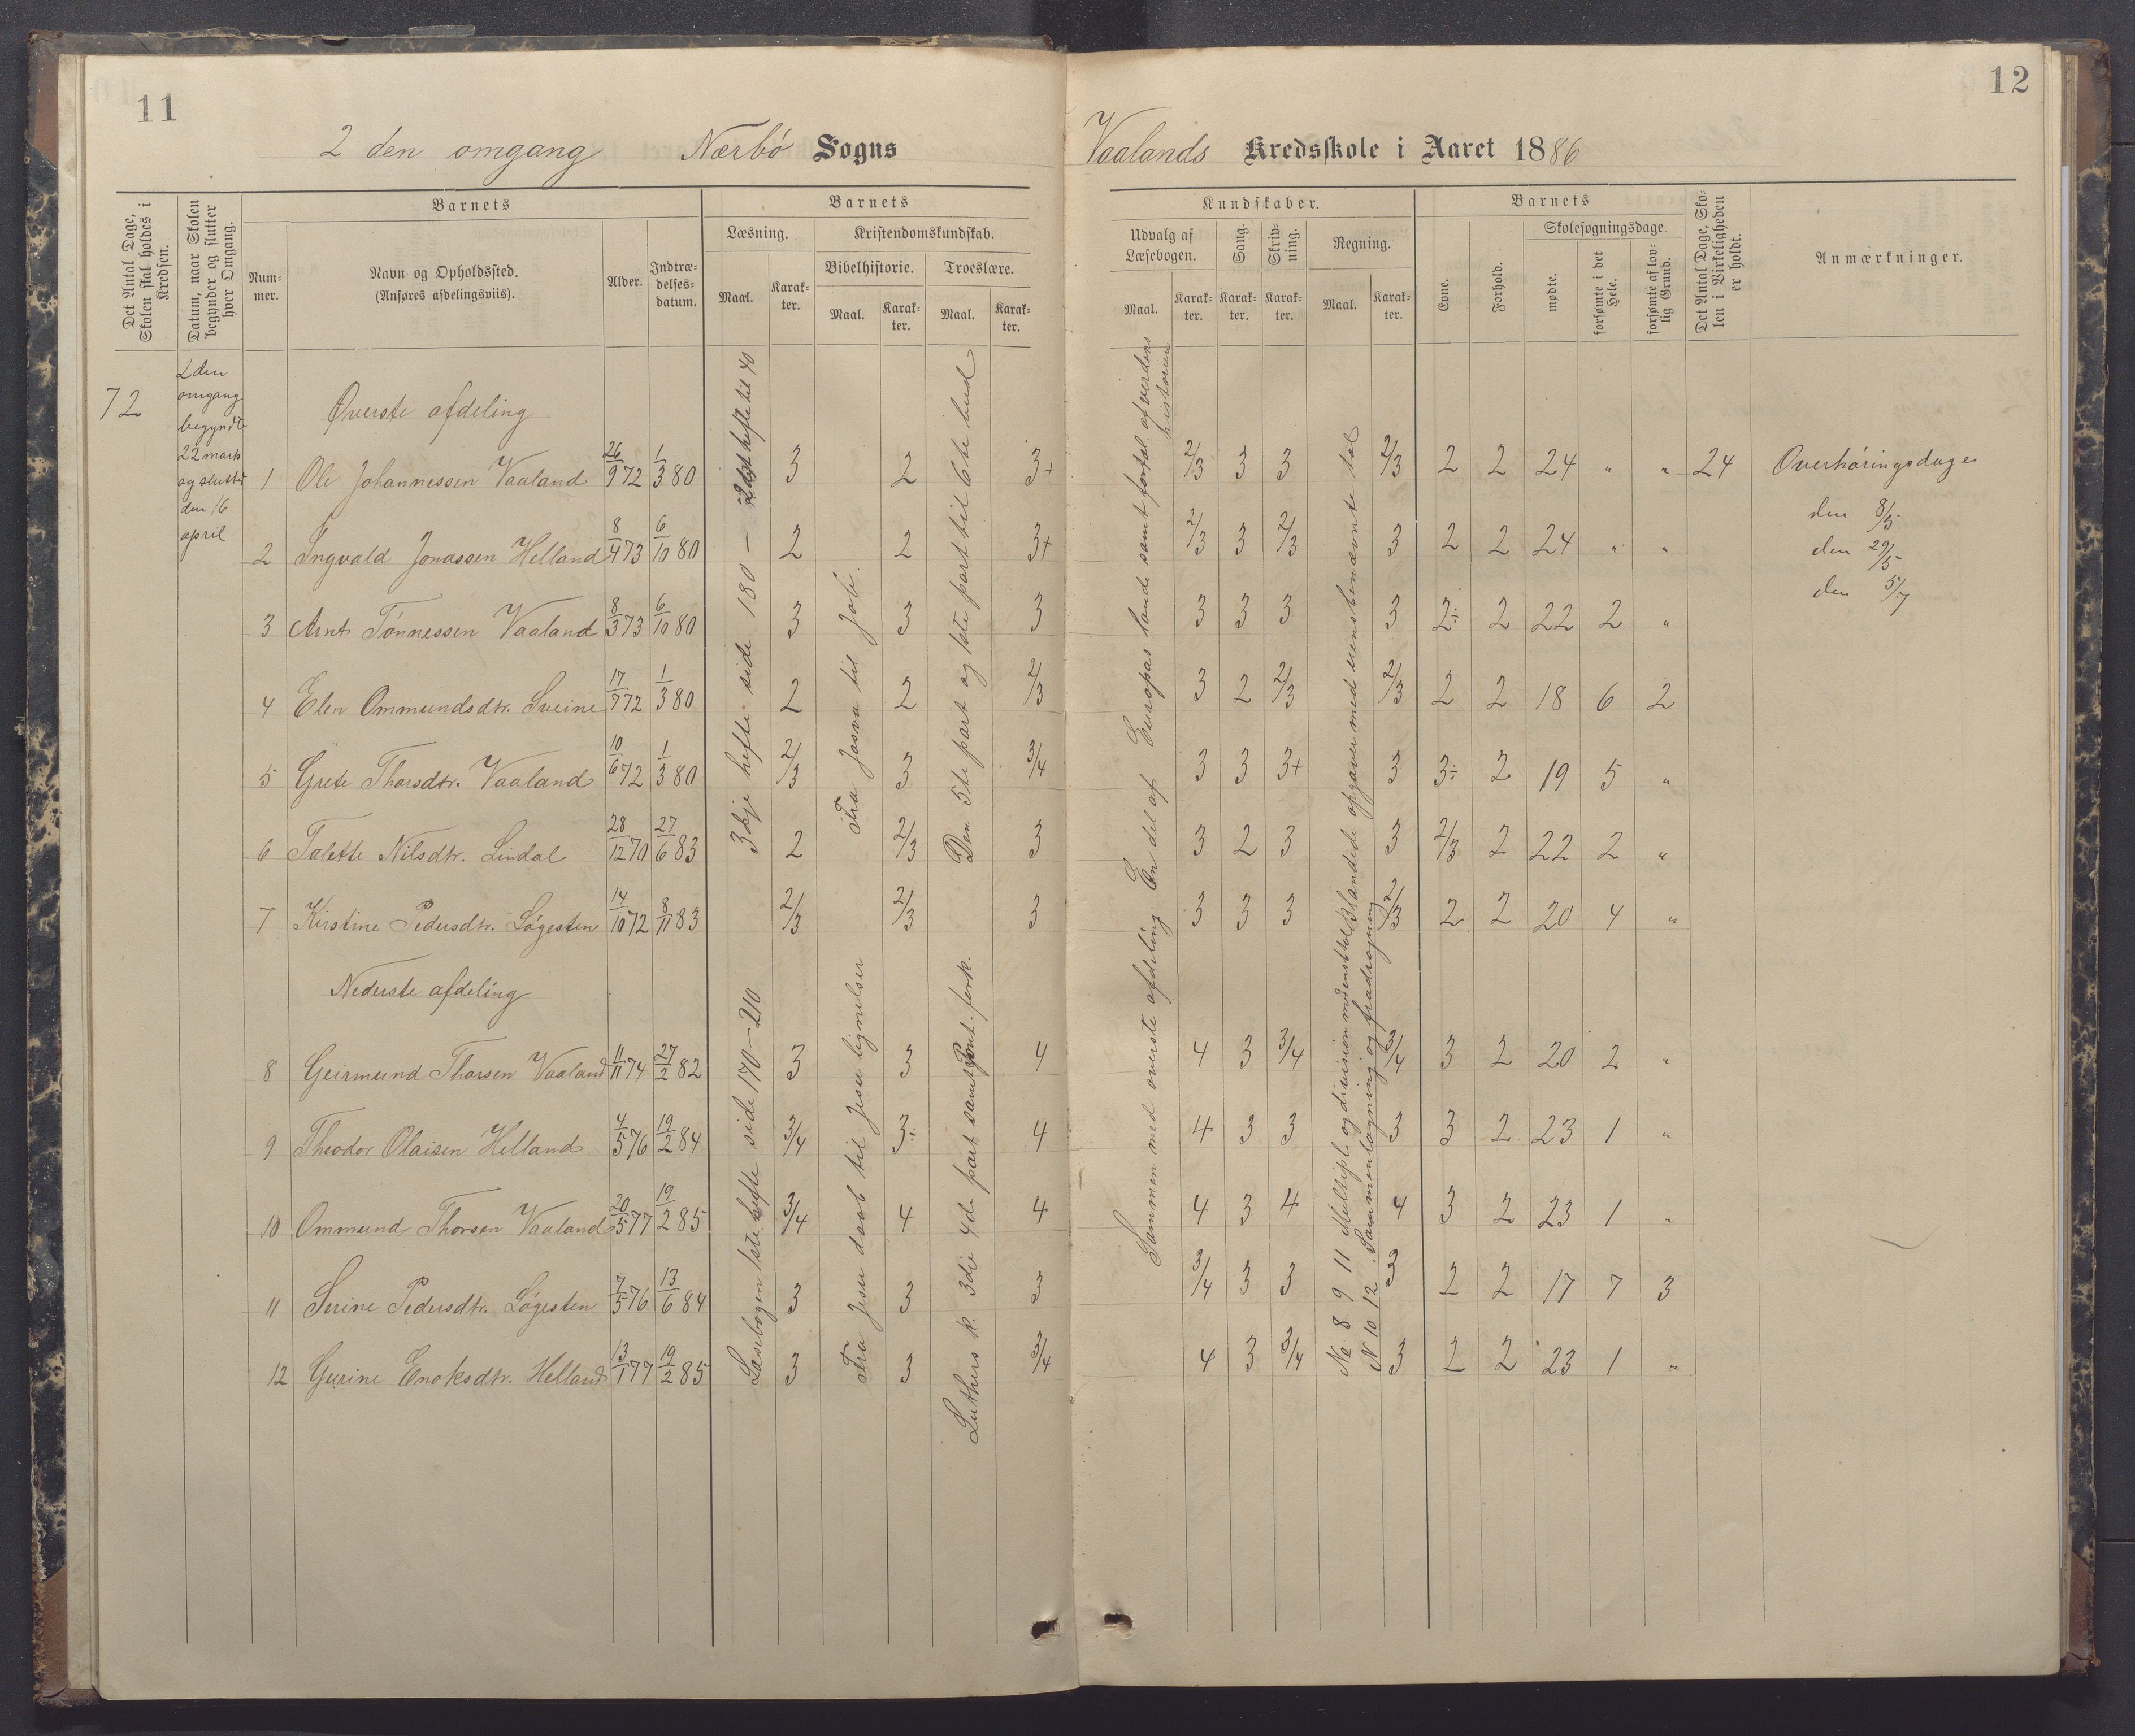 11
2 den omgang Nærbø Sogns
Det Antal Dage, Skolen skal holdes i Kredsen.
Datum, naar Skolen begynder og slutter hver Omgang.
Barnets
Num-mer.
Navn og Opholdssted.
(Anføres afdelingsviis).
Alder.
Indtræ-delses-datum.
Barnets
Læsning.
Maal.
Karak-ter.
Kristendomskundskab.
Bibelhistorie.
Maal.
Karak-ter.
Troeslære.
Maal.
Karak-ter.
72
2den
omgang
begyndte
22 marts
og sluttet
den 16
april
Øverste afdeling
1 Ole Johannessen Vaaland 26/9 72 1/3 80 3 2 3+
2 Ingvald Jonassen Helland 8/4 73 6/10 80 2 2 3+
3 Arnt Tønnessen Vaaland 8/3 73 6/10 80 3 3 3
4 Elen Ommundsdtr. Sveine 17/7 72 1/3 80 2 2 2/3
5 Grete Thorsdtr. Vaaland 10/6 72 1/3 80 2/3 3 3/4
6 Talette Nilsdtr. Lindal 28/12 70 27/6 83 2 2/3 3
7 Kirstine Pedersdtr. Løgesten 14/10 72 8/11 83 2/3 2/3 3
Nederste afdeling
8 Geirmund Thorsen Vaaland 11/11 74 27/2 82 3 3 4
9 Theodor Olaisen Helland 4/5 76 19/2 84 3/4 3÷ 4
10 Ommund Thorsen Vaaland 20/5 77 19/2 85 3/4 4 4
11 Serine Pedersdtr. Løgesten 7/5 76 13/6 84 3 3 3
12 Gurine Enoksdtr. Helland 13/1 77 19/2 85 3 3 3/4
3dje hefte side 180 – hefte til 40
Fra Josva til Job.
Den 5te part og 1ste part til 6te bud
Læsebogen 1ste hefte side 170–210
Fra Jesu daab til Jesu lignelser
Luthers k. 3die 4de part samt Pont. fork.
12
Vaalands Kredsskole i Aaret 1886
Kundskaber.
Udvalg af Læsebogen.
Maal.
Karak-ter.
Sang.
Karak-ter.
Skriv-ning.
Karak-ter.
Regning.
Maal.
Karak-ter.
Barnets
Evne.
Forhold.
Skolesøgningsdage.
mødte.
forsømte i det Hele.
forsømte af lov-lig Grund.
Det Antal Dage, Sko-len i Virkeligheden er holdt.
Anmærkninger.
2/3 3 3 2/3 2 2 24 " " 24 Overhøringsdage
2/3 3 2/3 3 2 2 24 " "
den 8/5
den 29/5
den 5/7
3 3 3 3 2÷ 2 22 2 "
3 2 2/3 2/3 2 2 18 6 2
3 3 3+ 3 3÷ 2 19 5 "
3 2 3 3 2/3 2 22 2 "
3 3 3 2/3 2 2 20 4 "
4 3 3/4 3/4 3 2 20 2 "
4 3 3 3 3 2 23 1 "
4 3 4 4 3 2 23 1 "
3/4 3 3 3 2 2 17 7 3
4 3 3/4 3 2 2 23 1 "
En del af Europas lande samt fortal. af verdens historien
Sammen med øverste afdeling.
Blandede opgaver med eensbenævnte tal
No 8 9 11 Multipl. og division
N 10 12. Sammenlægning og fradragning